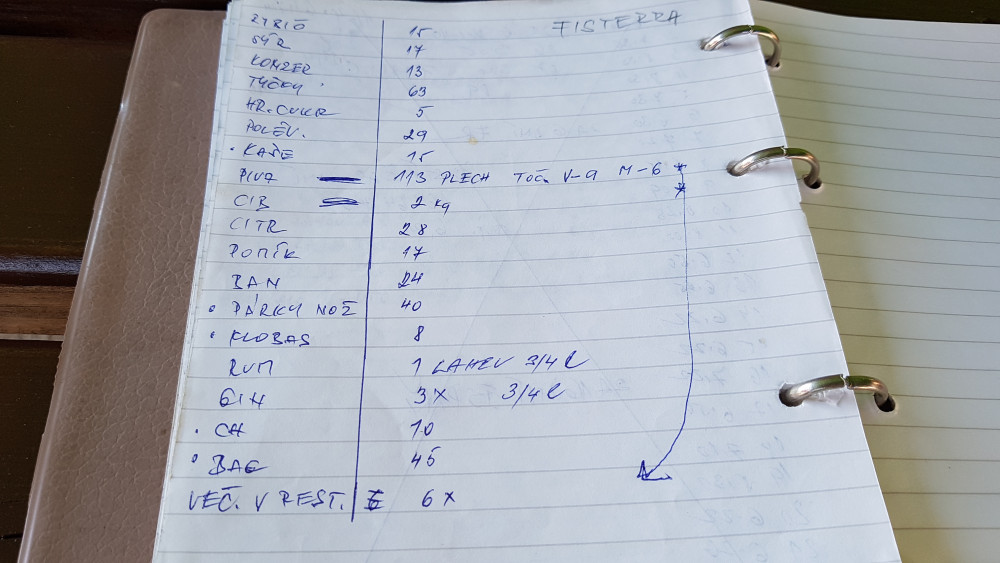 FISTERRA
RYBIČ 15
SÝR 17
KONZER 13
TYČKY 63
HR. CUKR 5
POLÉV. 29
• KAŠE 15
PIVA 113 PLECH TOČ. V-9 M-6 *
CIB 2 kg *
CITR 28
POMÍK 17
BAN 24
• PÁRKY NOŽ 40
• KLOBAS 8
RUM 1 LAHEV 3/4 l
GIN 3x 3/4 l
• CH 10
• BAG 45
VEČ. V REST. 6x